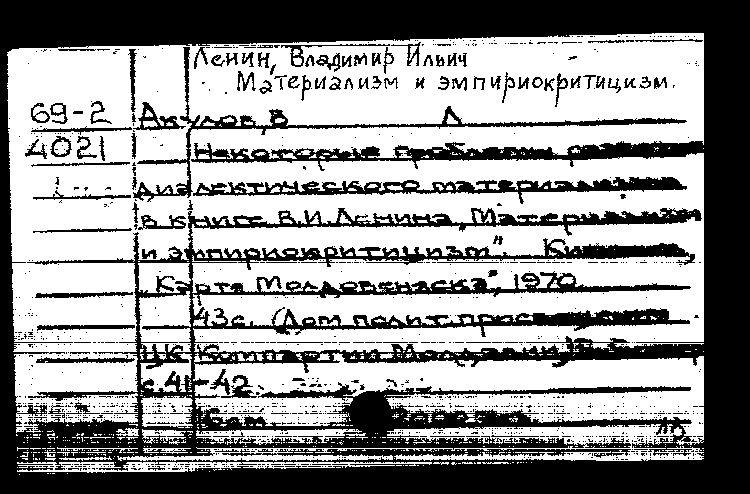 Ленин, Владимир Ильич
Материализм и эмпириокритицизм.
69-2
Акулов, В Л
4021
Некоторые проблемы развития
диалектического материализма
в книге В.И. Ленина „Материализм
и эмпириокритицизм". Кишинев,
„Картя Молдовеняскэ", 1970.
43 с. (Дом полит. просвещения
ЦК Компартии Молдавии)
с. 41-42